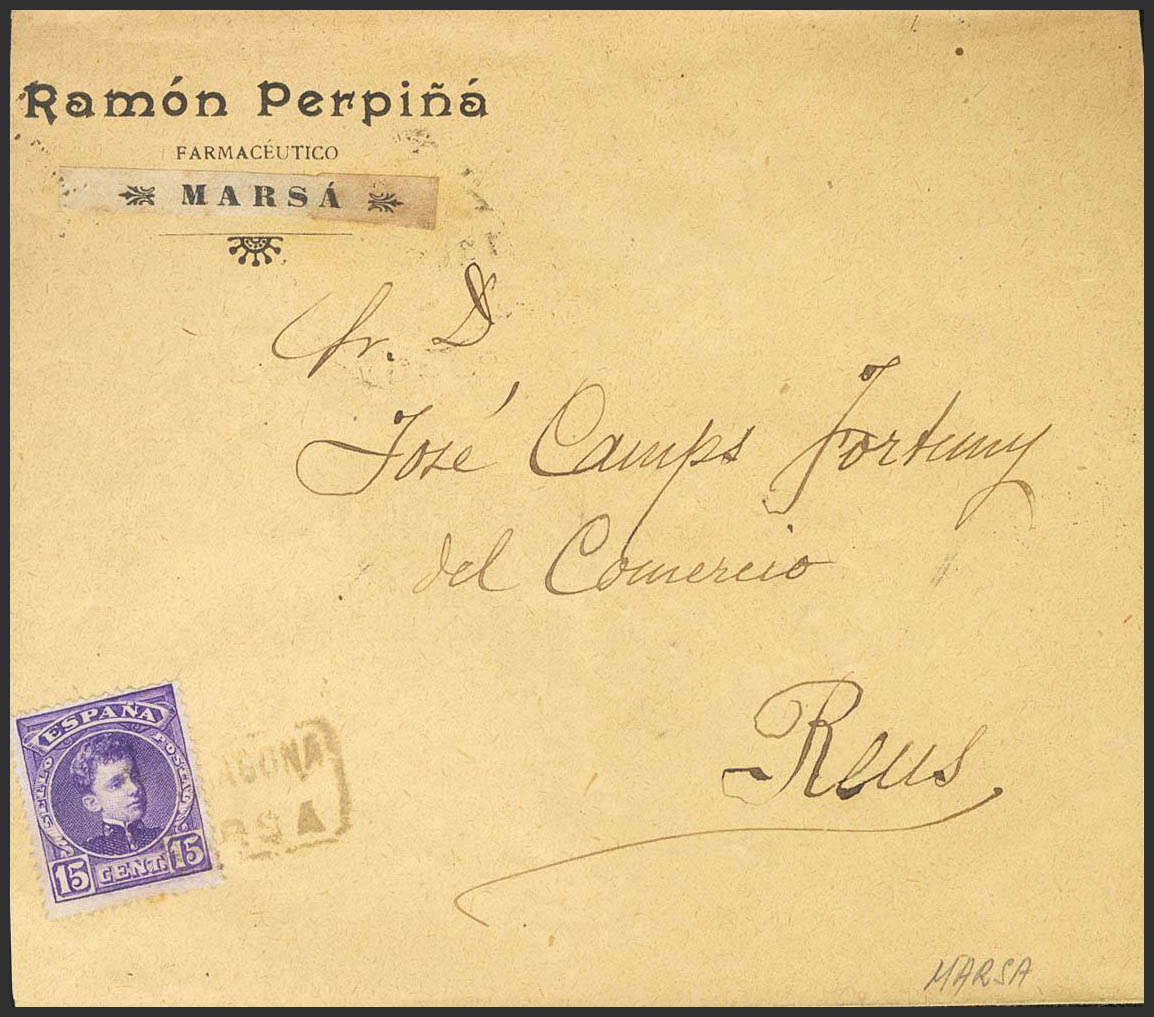 Ramón Perpiñá
FARMACÉUTICO
MARSÁ
Sr. D
José Camps Fortuny
del Comercio
Reus
ESPAÑA
SELLO POSTAL
15 CENT. 15
AGONA
RSA
MARSA